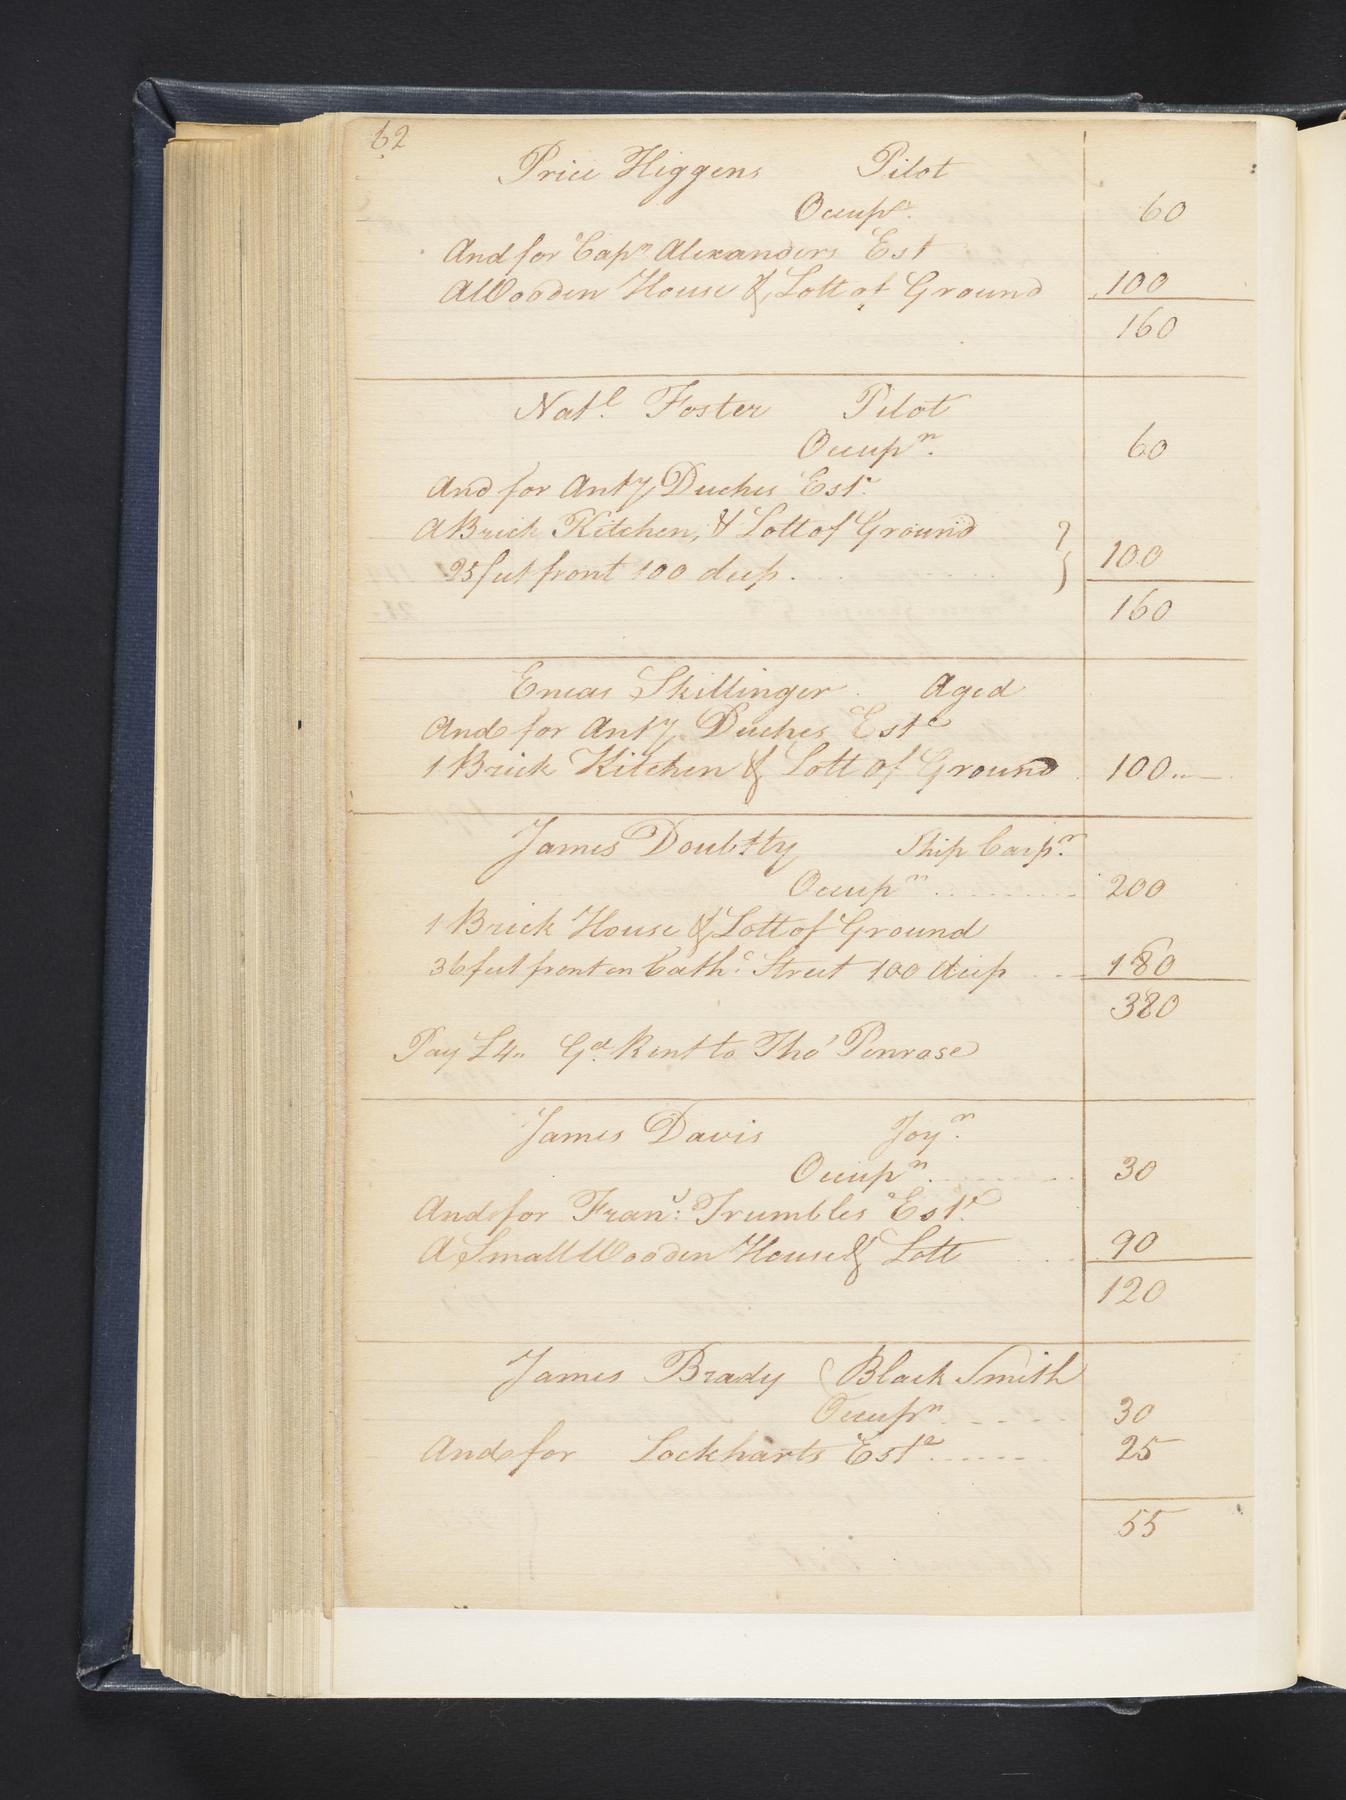 62
Price Higgens Pilot
Occupn. 60
And for Capn Alexanders Est
A Wooden House & Lott of Ground 100
160
Natl. Foster Pilot
Occupn. 60
And for Anty Duches Est.
A Brick Kitchen, & Lott of Ground
25 feet front 100 deep. } 100
160
Eneas Skillinger Aged
And for Anty Duches Este
1 Brick Kitchen & Lott of Ground 100
James Doubtty Ship Carpr.
Occupn 200
1 Brick House & Lott of Ground
36 feet front on Cathe. Street 100 deep 180
380
Pay £4 Gd. Rent to Tho' Penrose
James Davis Joyr.
Occupn. 30
And for Frans: Trumbles Este.
A Small Wooden House & Lott 90
120
James Brady Black Smith
Occupn 30
And for Lockharts Este 25
55